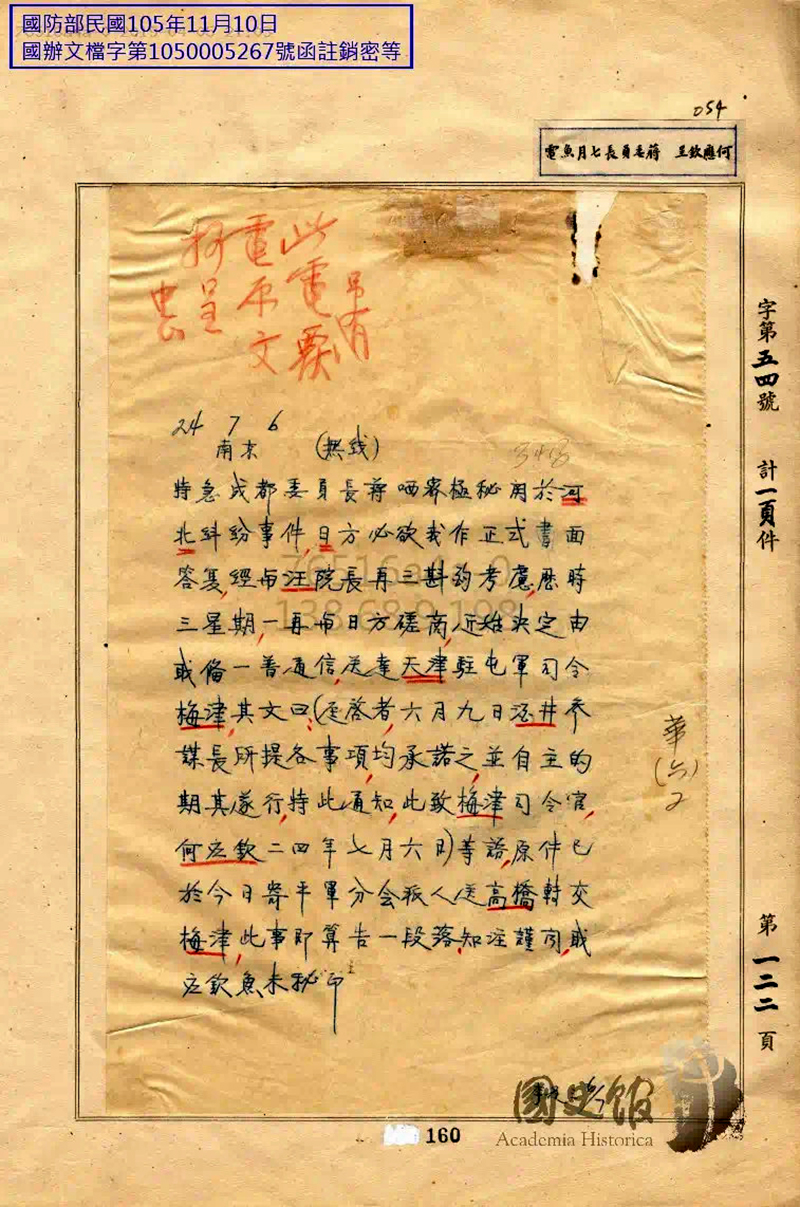 國防部民國105年11月10日
國辦文檔字第1050005267號函註銷密等
054
何應欽呈 蔣委員長七月魚電
字第五四號 計一頁件 第一二二頁
此電
電原文
抄呈
24 7 6
南京 (無线)
348
特急成都委員長蔣哂密極秘関於河
北糾紛事件,日方必欲我作正式書面
答复,經与汪院長再三斟酌考慮,歷時
三星期,一再与日方磋商,近始決定由
职備一普通信,送達天津駐屯軍司令
梅津,其文曰:(逕啓者,六月九日酒井参
謀長所提各事項,均承諾之,並自主的
期其遂行,特此通知,此致梅津司令官,
何应欽二四年七月六日)等語,原件已
於今日寄平軍分会派人送高橋轉交
梅津,此事即算告一段落,知注謹闻,职
应欽魚未秘印
160
國史館
Academia Historica